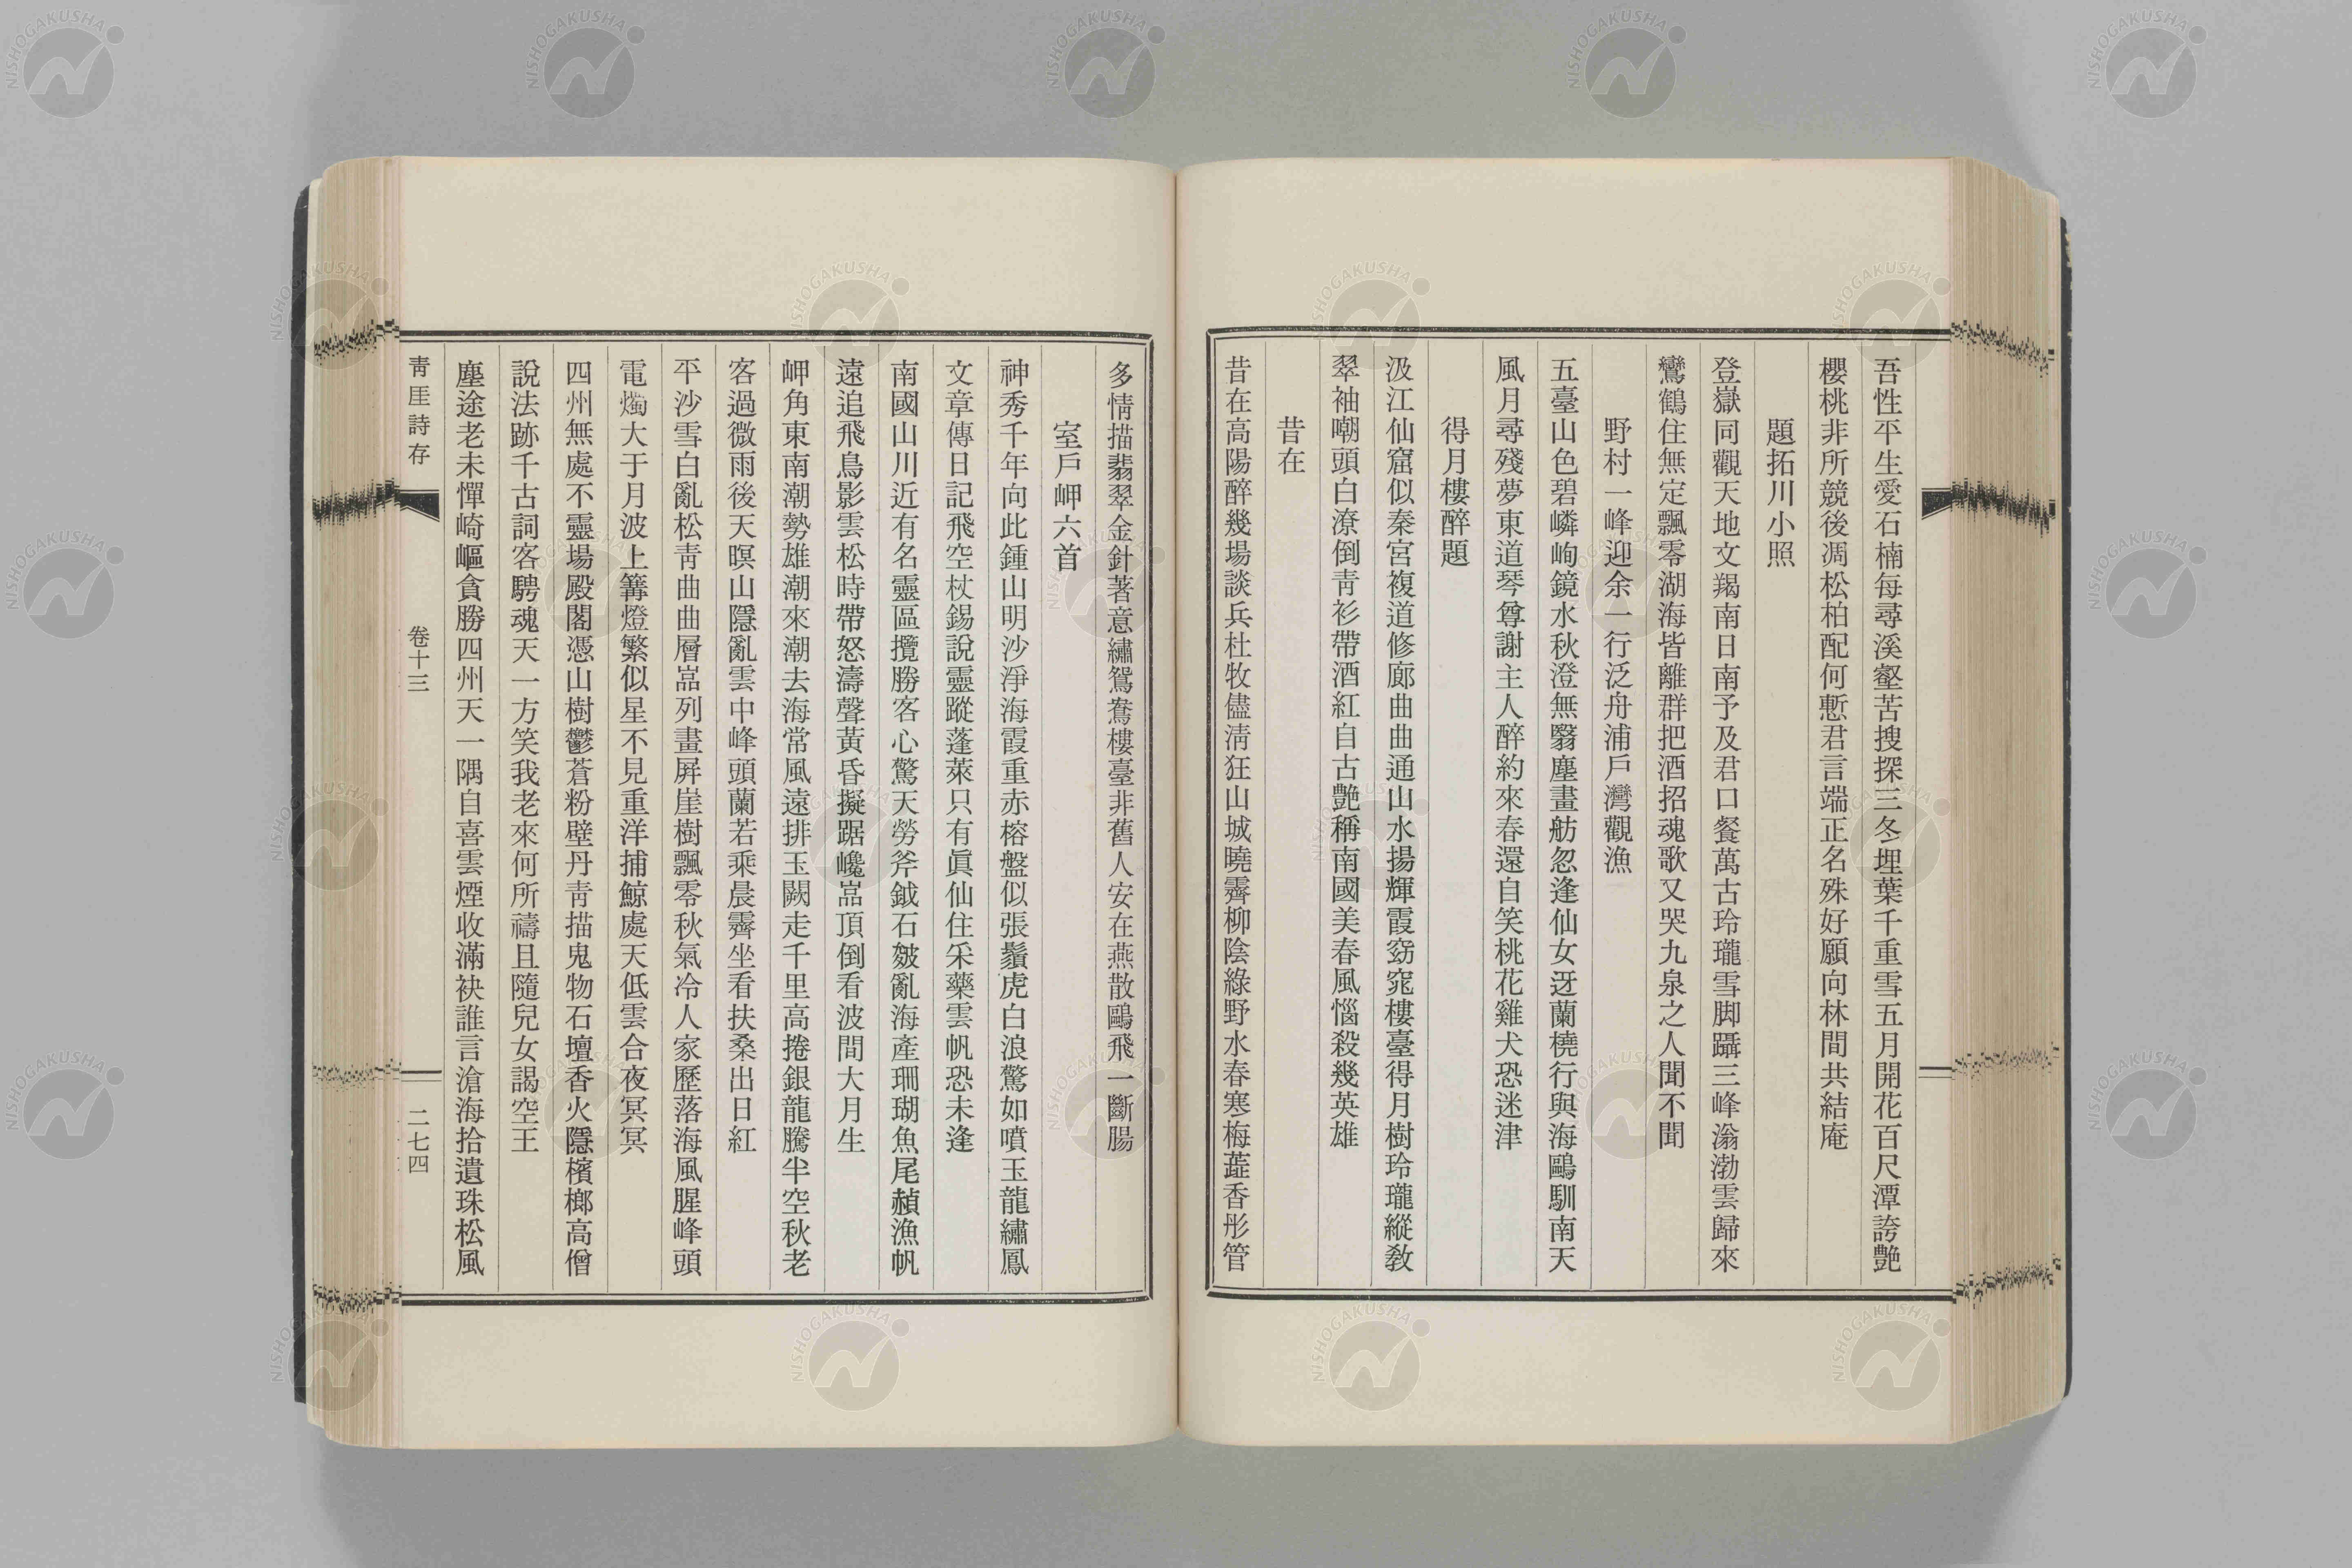 吾性平生愛石楠每尋溪壑苦搜探三冬埋葉千重雪五月開花百尺潭誇艶
櫻桃非所競後凋松柏配何慙君言端正名殊好願向林間共結庵
題拓川小照
登嶽同觀天地文羯南日南予及君口餐萬古玲瓏雪脚躡三峰滃渤雲歸來
鸞鶴住無定飄零湖海皆離群把酒招魂歌又哭九泉之人聞不聞
野村一峰迎余一行泛舟浦戶灣觀漁
五臺山色碧嶙峋鏡水秋澄無翳塵畫舫忽逢仙女迓蘭橈行與海鷗馴南天
風月尋殘夢東道琴尊謝主人醉約來春還自笑桃花雞犬恐迷津
得月樓醉題
汲江仙窟似秦宮複道修廊曲曲通山水揚輝霞窈窕樓臺得月樹玲瓏縱敎
翠袖嘲頭白潦倒靑衫帶酒紅自古艶稱南國美春風惱殺幾英雄
昔在
昔在高陽醉幾場談兵杜牧儘淸狂山城曉霽柳陰綠野水春寒梅蕋香彤管
多情描翡翠金針著意繡鴛鴦樓臺非舊人安在燕散鷗飛一斷腸
室戶岬六首
神秀千年向此鍾山明沙淨海霞重赤榕盤似張鬚虎白浪驚如噴玉龍繡鳳
文章傳日記飛空杖錫說靈蹤蓬萊只有眞仙住采藥雲帆恐未逢
南國山川近有名靈區攬勝客心驚天勞斧鉞石皴亂海產珊瑚魚尾赬漁帆
遠追飛鳥影雲松時帶怒濤聲黃昏擬踞巉嵓頂倒看波間大月生
岬角東南潮勢雄潮來潮去海常風遠排玉闕走千里高捲銀龍騰半空秋老
客過微雨後天暝山隱亂雲中峰頭蘭若乘晨霽坐看扶桑出日紅
平沙雪白亂松靑曲曲層嵓列畫屛崖樹飄零秋氣冷人家歷落海風腥峰頭
電燭大于月波上篝燈繁似星不見重洋捕鯨處天低雲合夜冥冥
四州無處不靈場殿閣憑山樹鬱蒼粉壁丹靑描鬼物石壇香火隱檳榔高僧
說法跡千古詞客騁魂天一方笑我老來何所禱且隨兒女謁空王
塵途老未憚崎嶇貪勝四州天一隅自喜雲煙收滿袂誰言滄海拾遺珠松風
靑厓詩存
卷十三
二七四
NISHOGAKUSHA